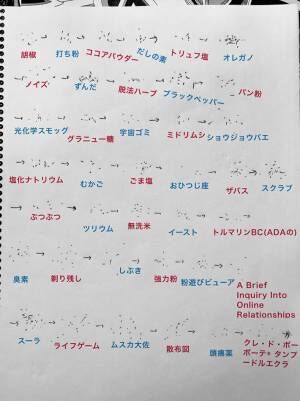 胡椒 打ち粉 ココアパウダー だしの素 トリュフ塩 オレガノ
ノイズ ずんだ 脱法ハーブ ブラックペッパー パン粉
光化学スモッグ グラニュー糖 宇宙ゴミ ミドリムシ ショウジョウバエ
塩化ナトリウム むかご ごま塩 おひつじ座 ザバス スクラブ
ぶつぶつ ツリウム 無洗米 イースト トルマリンBC(ADAの)
臭素 剃り残し しぶき 強力粉 粉遊びビューア
A Brief
Inquiry Into
Online
Relationships
スーラ ライフゲーム ムスカ大佐 散布図 頭痛薬
クレ・ド・ポー
ボーテ* タンプ
ードルエクラ